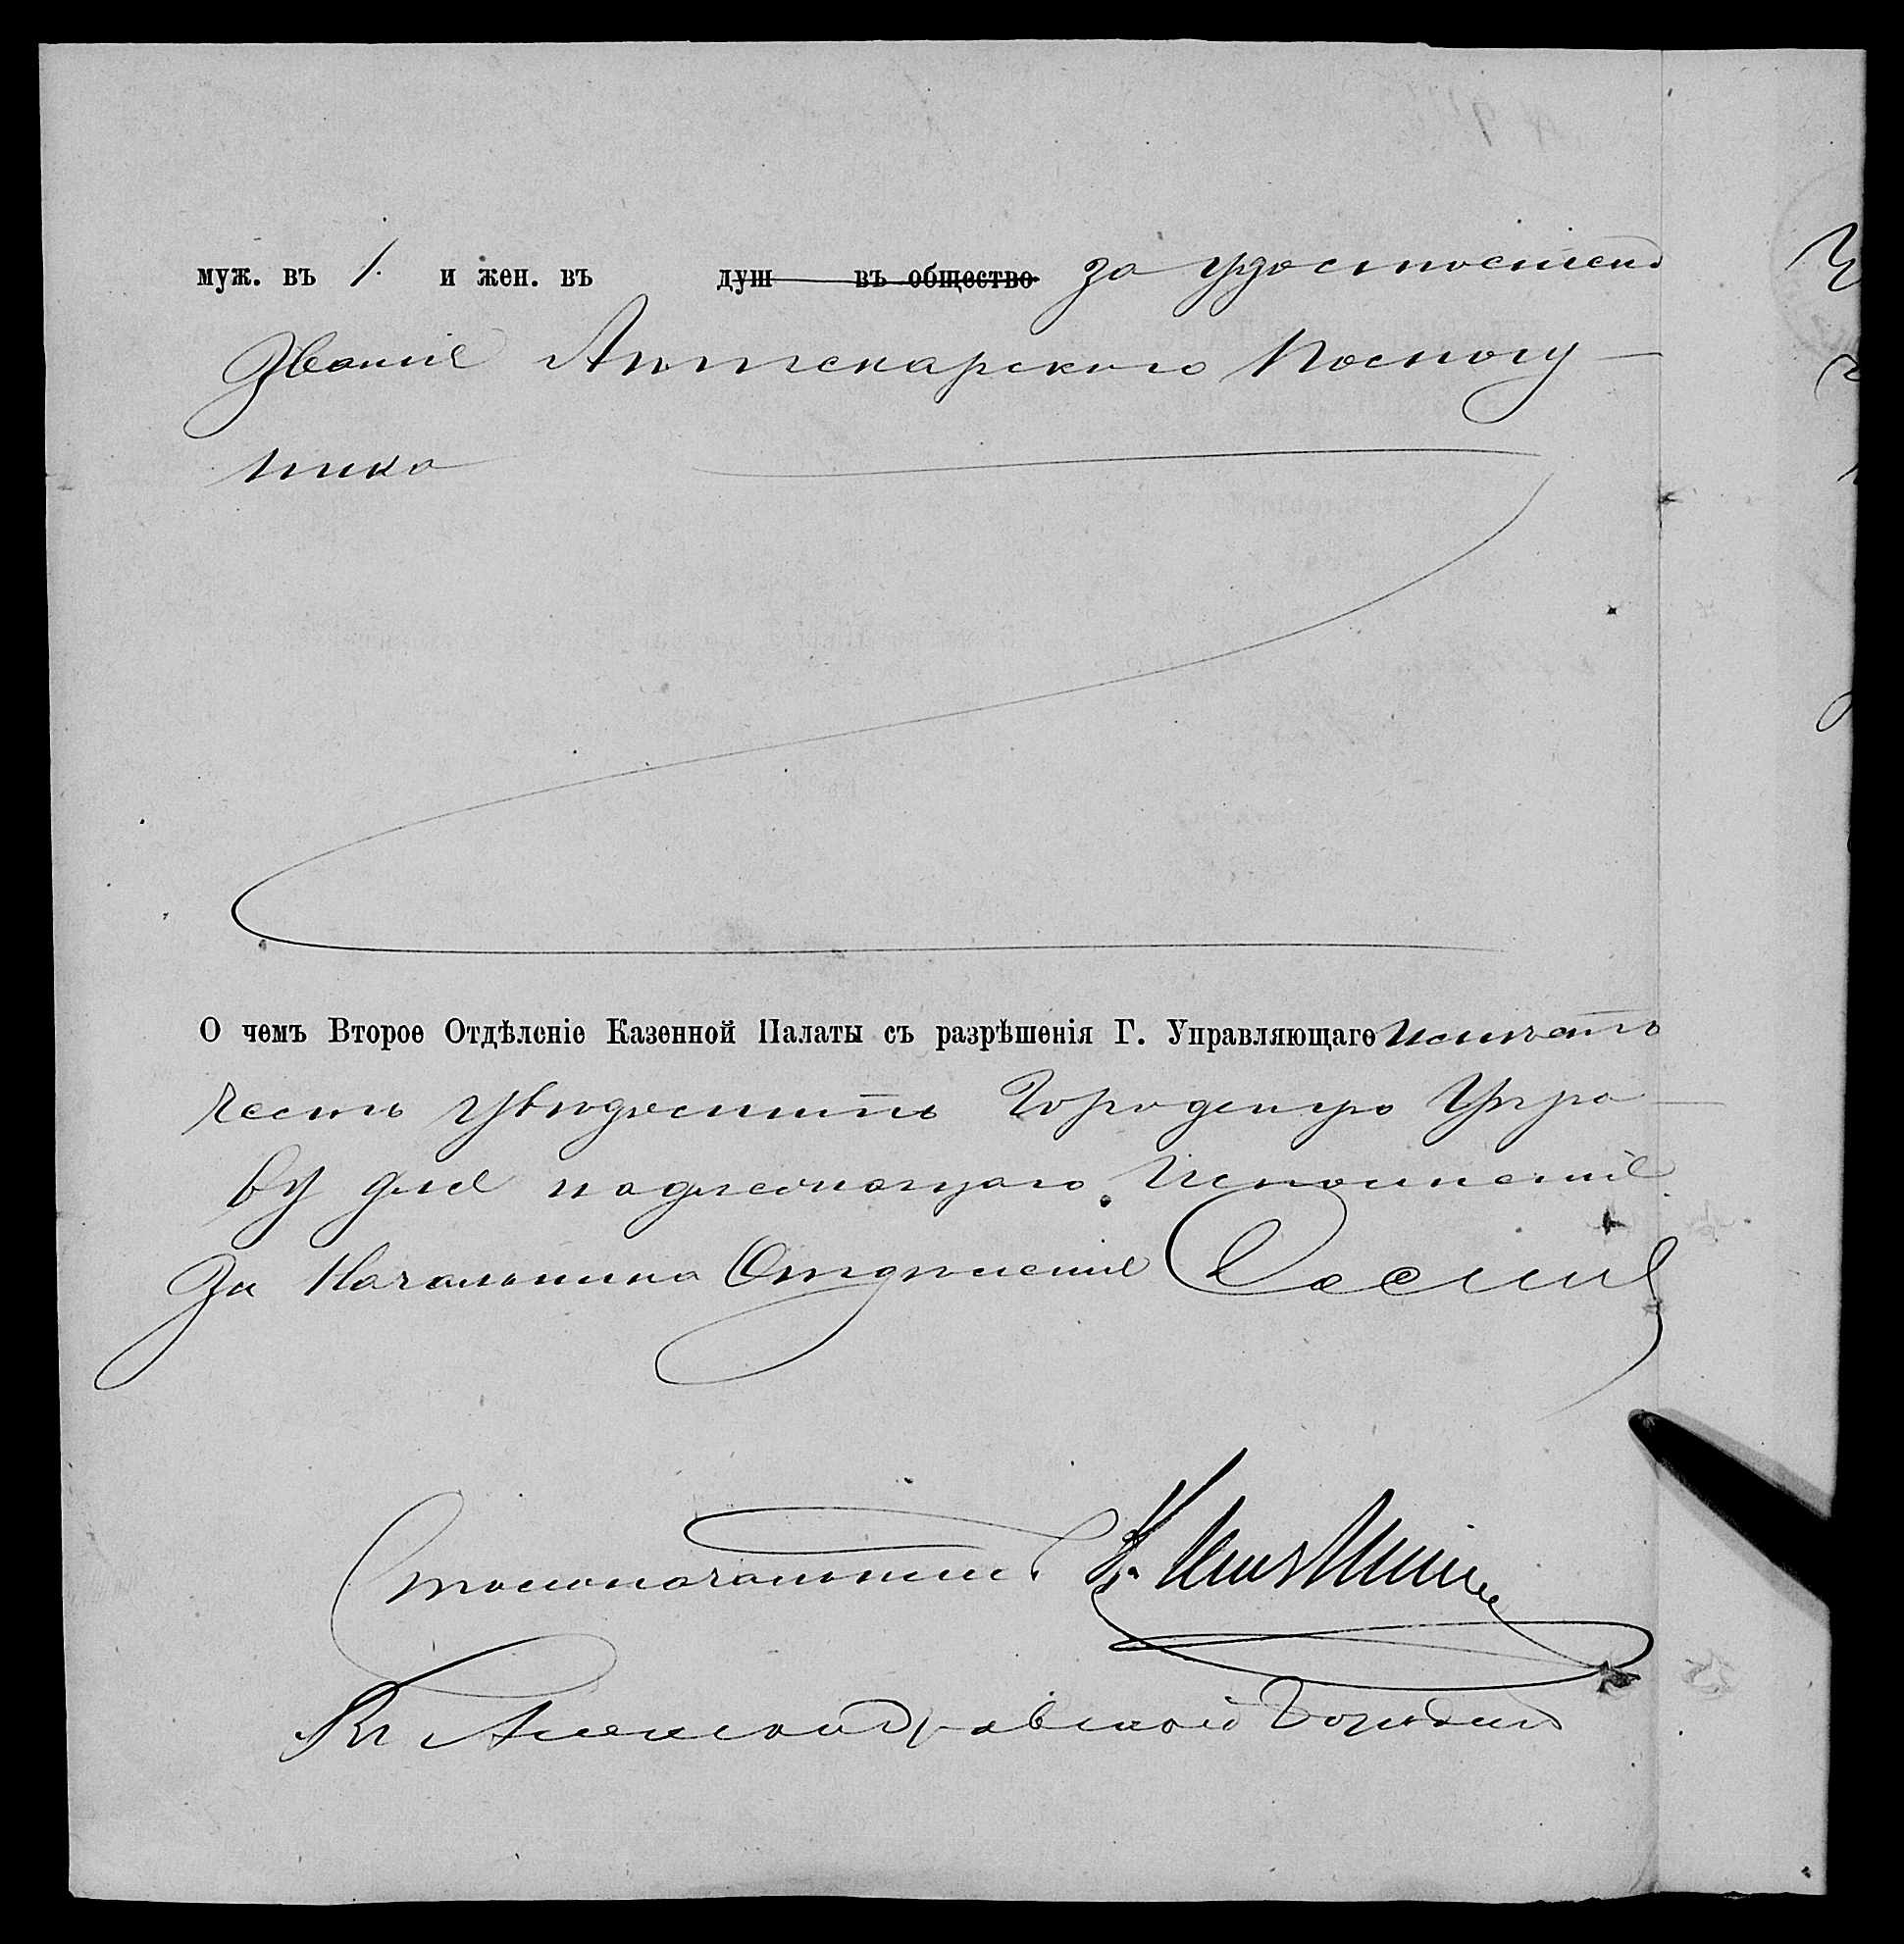 муж. въ 1. и жен. въ душ въ общество за удостоениемъ
Званія Аптекарского Помощ-
ника
О чемъ Второе Отдѣленіе Казенной Палаты съ разрѣшенія Г. Управляющаго имѣетъ
честь увѣдомить Городскую Упра-
ву для надлежащаго исполненія
За Начальника Отдѣленія
Столоначальникъ
Въ Александровскую Городскую